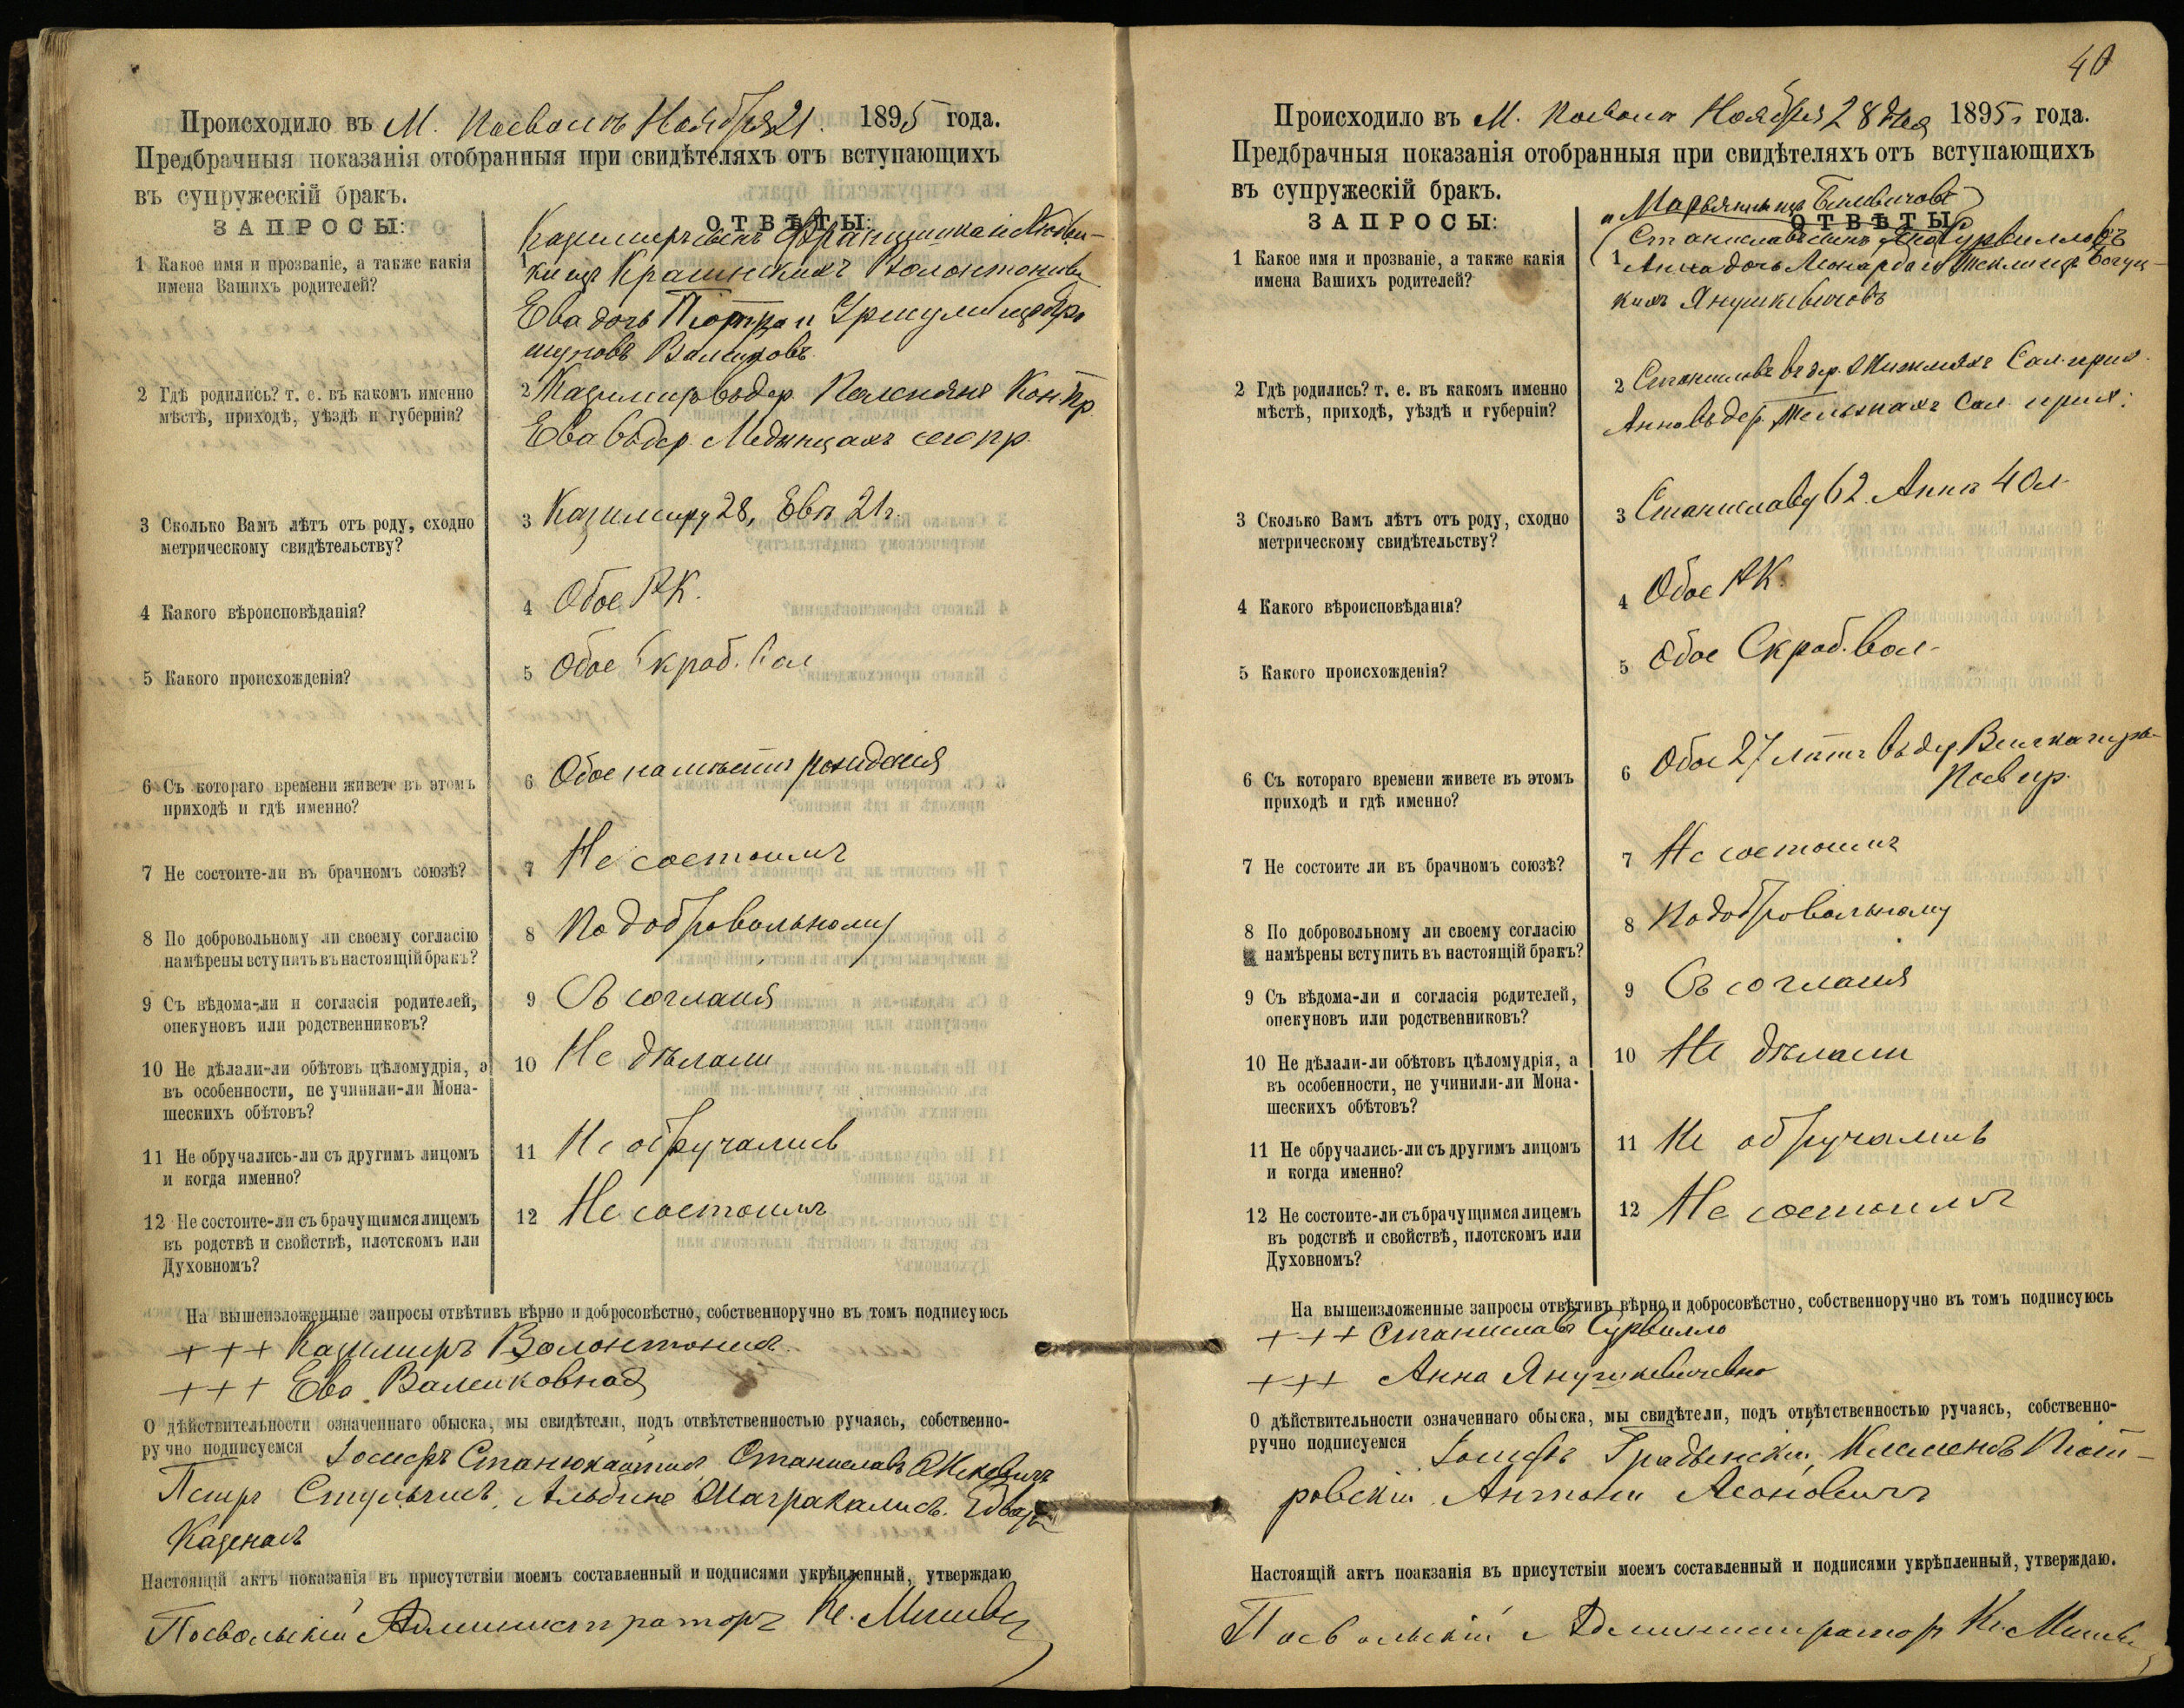 Происходило въ М. Посволѣ Ноября 21. 1895 года.
Предбрачныя показанія отобранныя при свидѣтеляхъ отъ вступающихъ
въ супружескій бракъ.
ЗАПРОСЫ:
ОТВѢТЫ:
1 Какое имя и прозваніе, а также какія
имена Вашихъ родителей?
1 Казимиръ сынъ Францишка и Людви-
ки изъ Крашинскихъ
Ева дочь Піотра и Уршули изъ
2 Гдѣ родились? т. е. въ какомъ именно
мѣстѣ, приходѣ, уѣздѣ и губерніи?
2 Казимиръ въ дер.
Ева въ дер. сего пр.
3 Сколько Вамъ лѣтъ отъ роду, сходно
метрическому свидѣтельству?
3 Казимиру 28, Евѣ 21 г.
4 Какого вѣроисповѣданія?
4 Обое РК.
5 Какого происхожденія?
5 Обое Скроб. вол
6 Съ котораго времени живете въ этомъ
приходѣ и гдѣ именно?
6 Обое на мѣстѣ рожденія
7 Не состоите-ли въ брачномъ союзѣ?
7 Не состоимъ
8 По добровольному ли своему согласію
намѣрены вступить въ настоящій бракъ?
8 По добровольному
9 Съ вѣдома-ли и согласія родителей,
опекуновъ или родственниковъ?
9 Съ согласія
10 Не дѣлали-ли обѣтовъ цѣломудрія, а
въ особенности, не учинили-ли Мона-
шескихъ обѣтовъ?
10 Не дѣлали
11 Не обручались-ли съ другимъ лицомъ
и когда именно?
11 Не обручались
12 Не состоите-ли съ брачущимся лицемъ
въ родствѣ и свойствѣ, плотскомъ или
Духовномъ?
12 Не состоимъ
На вышеизложенные запросы отвѣтивъ вѣрно и добросовѣстно, собственноручно въ томъ подписуюсь
+++ Казимиръ Волонтонисъ
+++ Ева
О дѣйствительности означеннаго обыска, мы свидѣтели, подъ отвѣтственностью ручаясь, собственно-
ручно подписуемся Іосифъ Станюкайтисъ Станиславъ
Петръ Альбинъ
Настоящій актъ показанія въ присутствіи моемъ составленный и подписями укрѣпленный, утверждаю
Посвольскій Администраторъ Кс.
40
Происходило въ М. Посволѣ Ноября 28 дня 1895 года.
Предбрачныя показанія отобранныя при свидѣтеляхъ отъ вступающихъ
въ супружескій бракъ.
ЗАПРОСЫ:
ОТВѢТЫ
1 Какое имя и прозваніе, а также какія
имена Вашихъ родителей?
и Марьянны изъ Билевичовъ
Станиславъ сынъ Яна Сурвилловъ
1 Анна дочь Леонарда и Теклии изъ Богуц-
кихъ Янушкевичовъ
2 Гдѣ родились? т. е. въ какомъ именно
мѣстѣ, приходѣ, уѣздѣ и губерніи?
2 Станиславъ въ дер. Сал. прих.
Анна въ дер. Сал. прих.
3 Сколько Вамъ лѣтъ отъ роду, сходно
метрическому свидѣтельству?
3 Станиславу 62. Аннѣ 40 л.
4 Какого вѣроисповѣданія?
4 Обое РК.
5 Какого происхожденія?
5 Обое Скроб. вол-
6 Съ котораго времени живете въ этомъ
приходѣ и гдѣ именно?
6 Обое 27 лѣтъ въ дер.
Посв пр.
7 Не состоите ли въ брачномъ союзѣ?
7 Не состоимъ
8 По добровольному ли своему согласію
намѣрены вступить въ настоящій бракъ?
8 По добровольному
9 Съ вѣдома-ли и согласія родителей,
опекуновъ или родственниковъ?
9 Съ согласія
10 Не дѣлали-ли обѣтовъ цѣломудрія, а
въ особенности, не учинили-ли Мона-
шескихъ обѣтовъ?
10 Не дѣлали
11 Не обручались-ли съ другимъ лицомъ
и когда именно?
11 Не обручались
12 Не состоите-ли съ брачущимся лицемъ
въ родствѣ и свойствѣ, плотскомъ или
Духовномъ?
12 Не состоимъ
На вышеизложенные запросы отвѣтивъ вѣрно и добросовѣстно, собственноручно въ томъ подписуюсь
+++ Станиславъ Сурвилло
+++ Анна Янушкевичевна
О дѣйствительности означеннаго обыска, мы свидѣтели, подъ отвѣтственностью ручаясь, собственно-
ручно подписуемся Іосифъ Клеменсъ Піот-
ровскій Антоній
Настоящій актъ поакзанія въ присутствіи моемъ составленный и подписями укрѣпленный, утверждаю.
Посвольскій Администраторъ Кс.